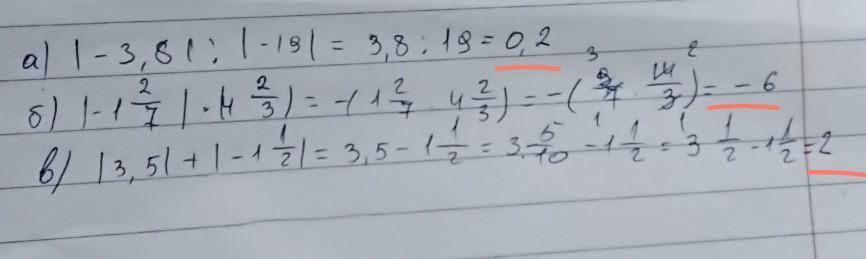 а) |-3,8| : |-19| = 3,8 : 19 = 0,2
б) |-1 2/7| · |4 2/3| = -(1 2/7 · 4 2/3) = -(9/7 · 14/3) = -6
в) |3,5| + |-1 1/2| = 3,5 - 1 1/2 = 3 5/10 - 1 1/2 = 3 1/2 - 1 1/2 = 2